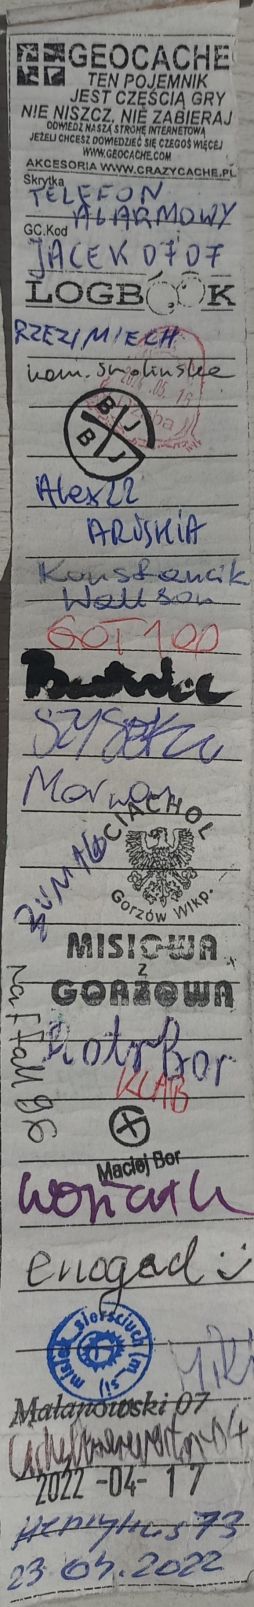 GEOCACHE
TEN POJEMNIK
JEST CZĘŚCIĄ GRY
NIE NISZCZ, NIE ZABIERAJ
DOWIEDZ NASZĄ STRONĘ INTERNETOWĄ
JEŻELI CHCESZ DOWIEDZIEĆ SIĘ CZEGOŚ WIĘCEJ
WWW.GEOCACHE.COM
AKCESORIA WWW.CRAZYCACHE.PL
Skrytka
TELEFON
ALARMOWY
GC.Kod
JACEK 0707
LOGBOOK
RZEZIMIECH
kam.smolinska
B J
B J
Alex22
ARUSHIA
Konstancik
Wattson
GOT100
SZYSZKU
Marwoj
CIACHOL
Gorzów Wlkp.
ZUMA
MISIOWA
z
GORZOWA
Naftali 96
PiotrBor
KLAB
Maciej Bor
Wojciech
enogad :)
Miki
Malanowski 07
2022 -04- 17
Henrykus73
23.04.2022